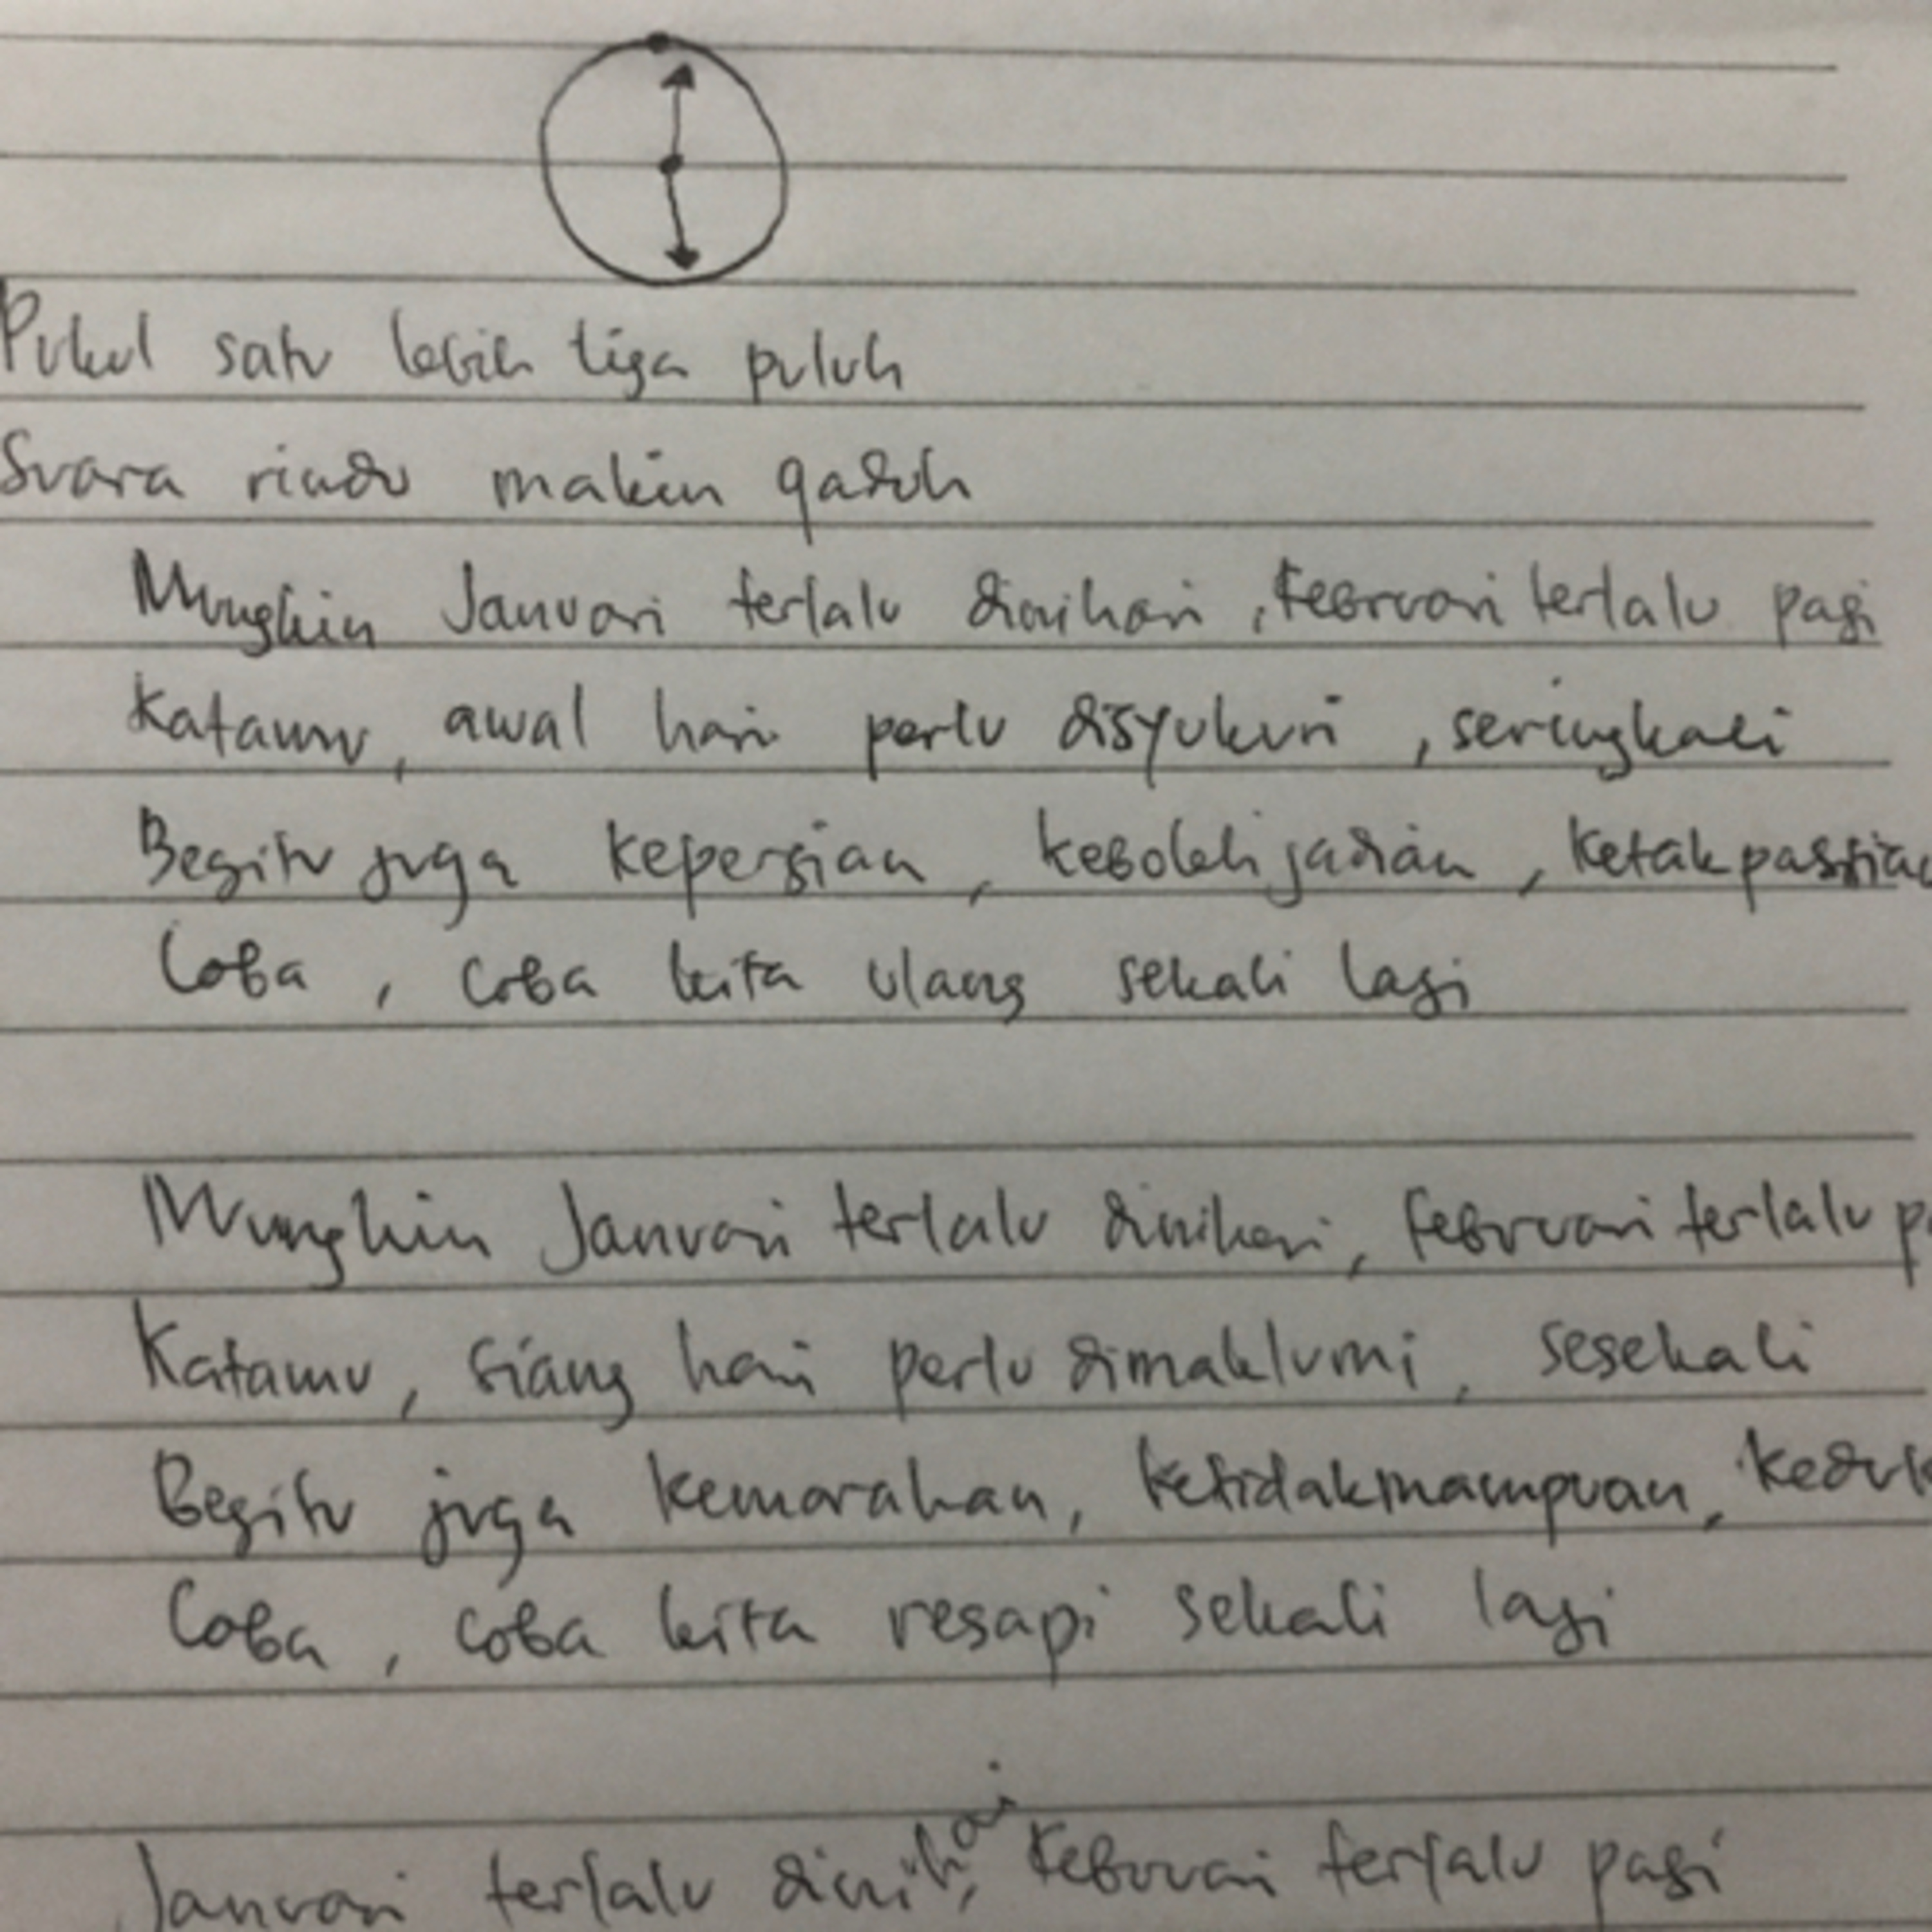 Pukul satu lebih tiga puluh
Suara rindu makin gaduh
Mungkin Januari terlalu dinihari, Februari terlalu pagi
Katamu, awal hari perlu disyukuri, seringkali
Begitu juga kepergian, kebolehjadian, ketakpastian
Coba, coba kita ulang sekali lagi
Mungkin Januari terlalu dinihari, Februari terlalu
Katamu, siang hari perlu dimaklumi, sesekali
Begitu juga kemarahan, ketidakmampuan,
Coba, coba kita resapi sekali lagi
Januari terlalu dinihari, Februari terlalu pagi